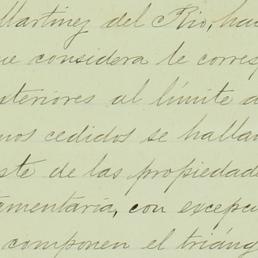 Martinez del Rio, ha
ue considera le corresp
steriores al límite d
nos cedidos se hallan
ste de las propiedade
ementaria, con excepci
componen el triáng